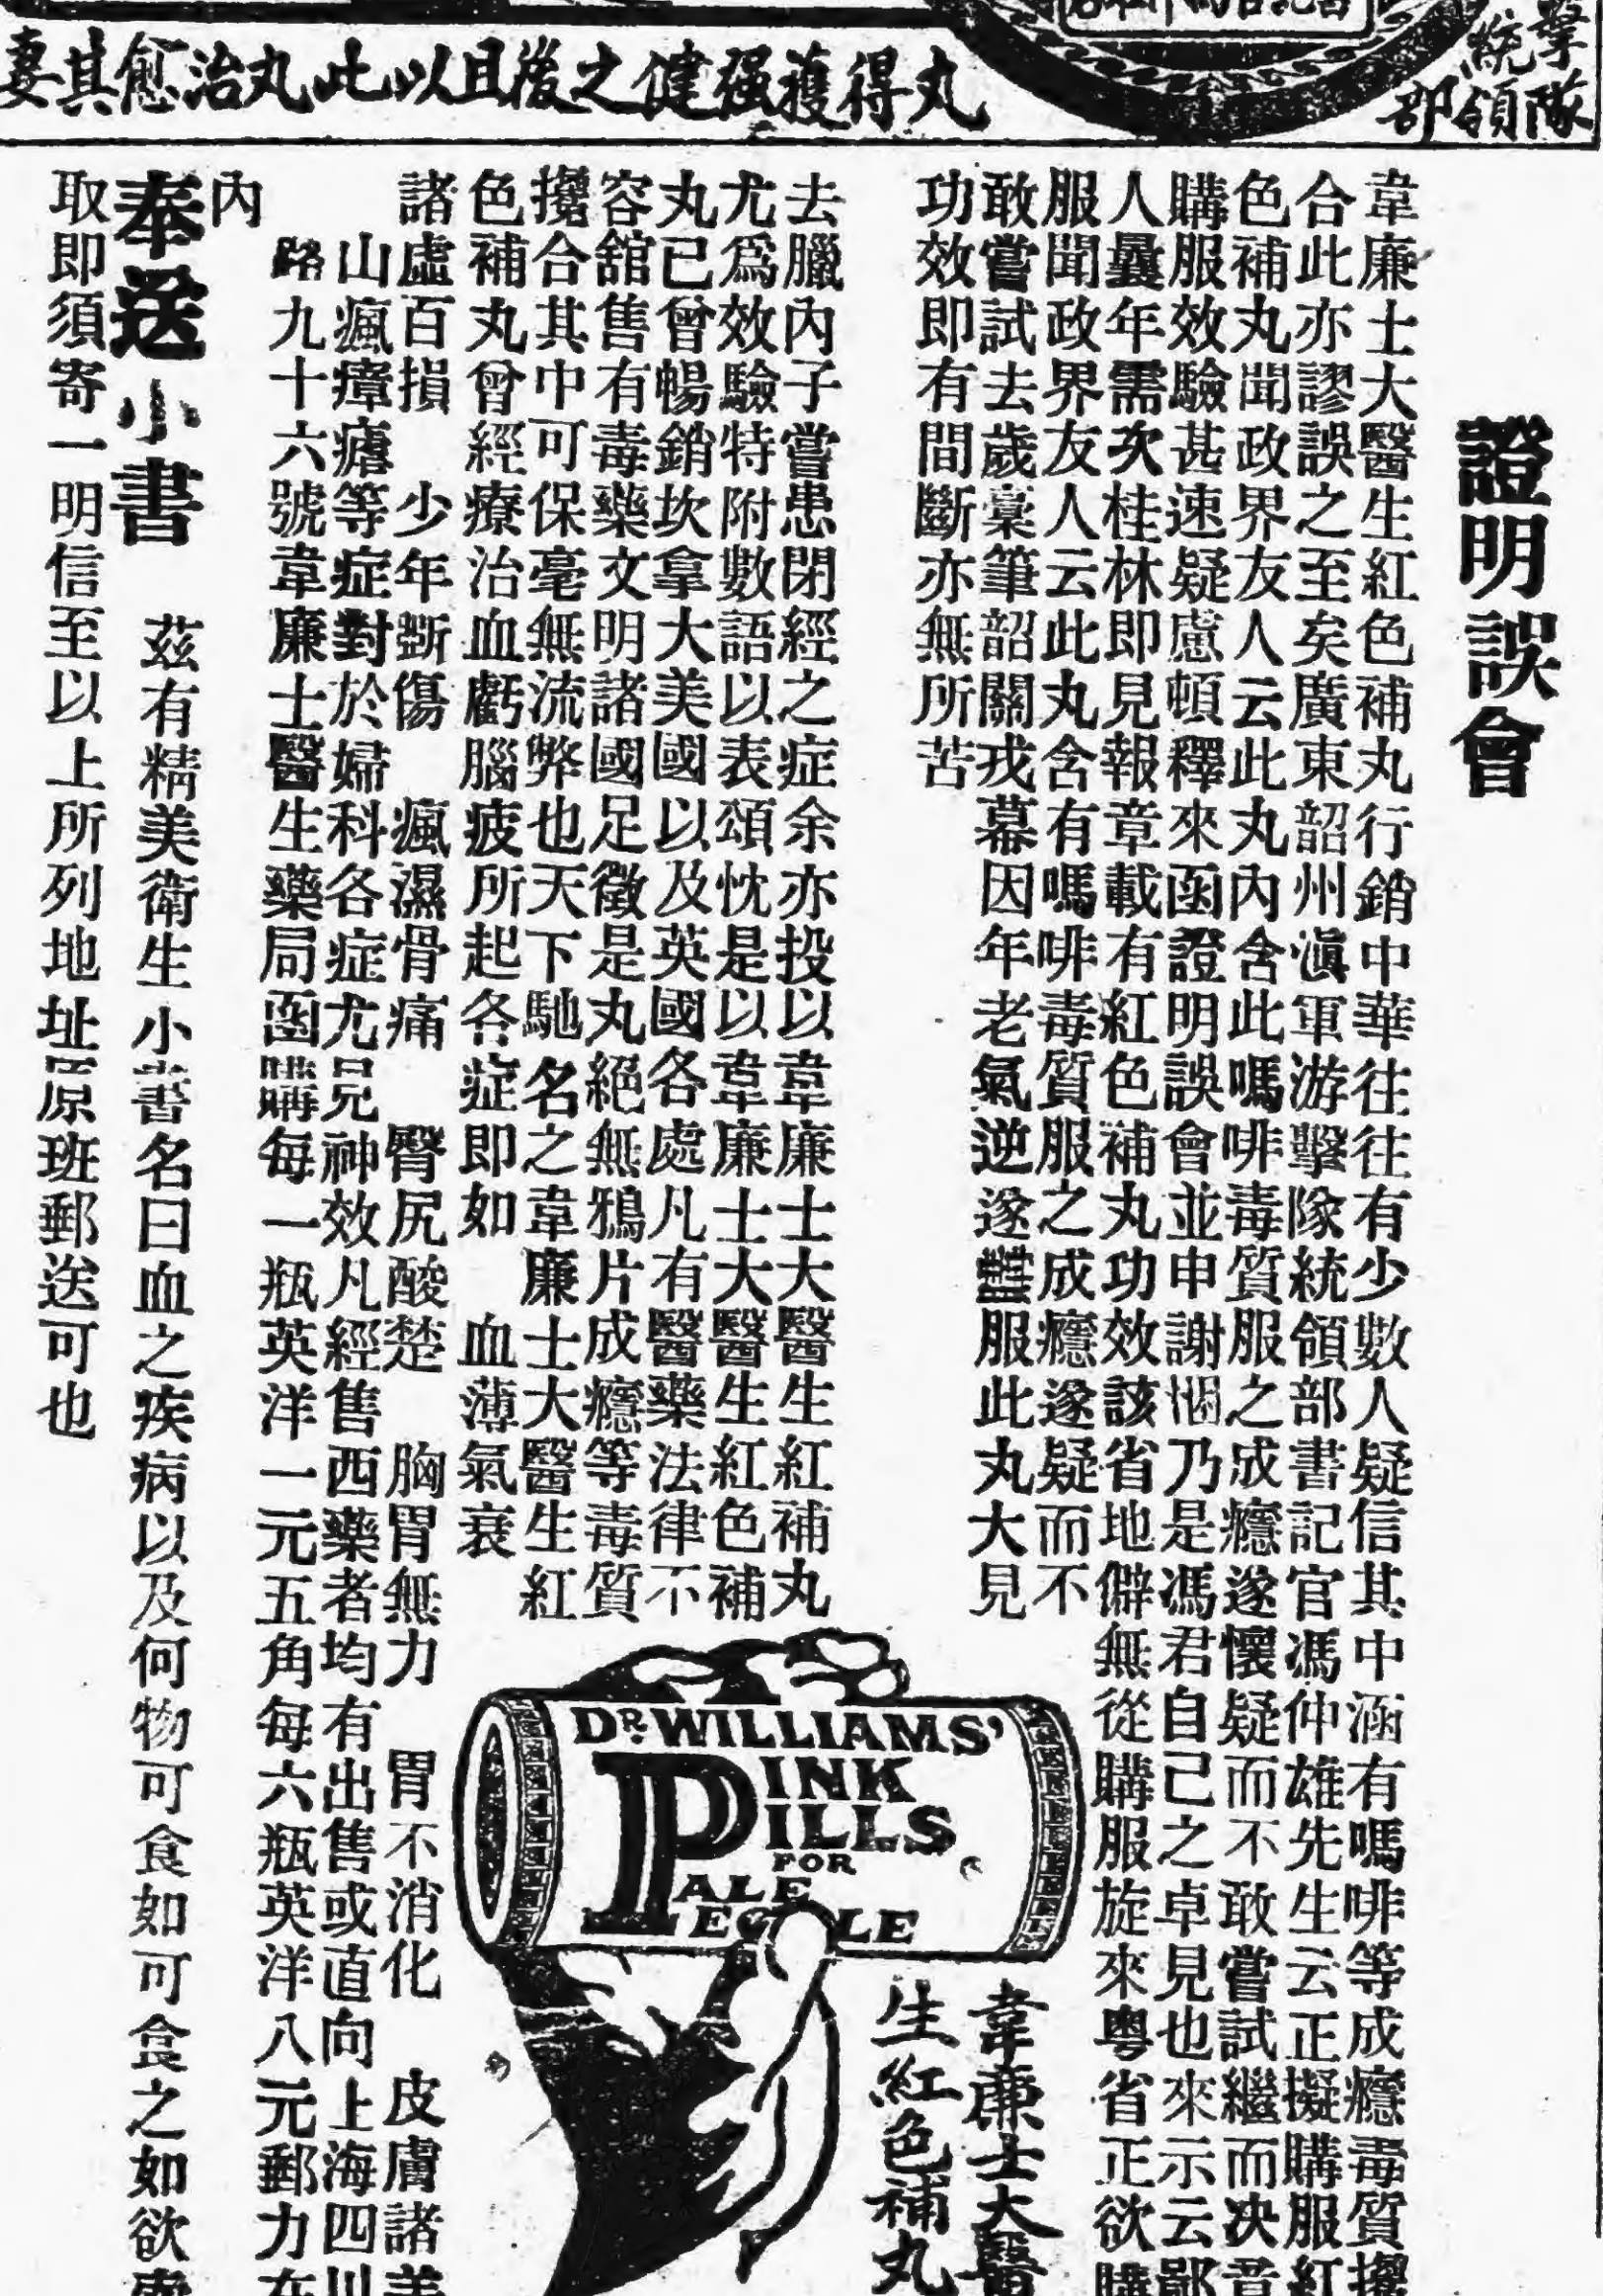 擊隊
統領
部
丸得獲强健之後且以此丸治愈其妻
證明誤會
韋廉士大醫生紅色補丸行銷中華往往有少數人疑信其中涵有嗎啡等成癮毒質攙
合此亦謬誤之至矣廣東韶州滇軍游擊隊統領部書記官馮仲雄先生云正擬購服紅
色補丸聞政界友人云此丸內含此嗎啡毒質服之成癮遂懷疑而不敢嘗試繼而决意
購服效驗甚速疑慮頓釋來函證明誤會並申謝悃乃是馮君自己之卓見也來示云鄙
人曩年需次桂林即見報章載有紅色補丸功效該省地僻無從購服旋來粵省正欲購
服聞政界友人云此丸含有嗎啡毒質服之成癮遂疑而不
敢嘗試去歲橐筆韶關戎幕因年老氣逆遂服此丸大見
功效即有間斷亦無所苦
去臘內子嘗患閉經之症余亦投以韋廉士大醫生紅補丸
尤爲效驗特附數語以表頌忱是以韋廉士大醫生紅色補
丸已曾暢銷坎拿大美國以及英國各處凡有醫藥法律不
容舘售有毒藥文明諸國足徵是丸絕無鴉片成癮等毒質
攙合其中可保毫無流弊也天下馳名之韋廉士大醫生紅
色補丸曾經療治血虧腦疲所起各症即如 血薄氣衰
諸虛百損 少年斲傷 瘋濕骨痛 臀尻酸楚 胸胃無力 胃不消化 皮膚諸
山瘋瘴瘧等症對於婦科各症尤見神效凡經售西藥者均有出售或直向上海四川
路九十六號韋廉士醫生藥局函購每一瓶英洋一元五角每六瓶英洋八元郵力在
內
奉送小書 茲有精美衛生小書名曰血之疾病以及何物可食如可食之如欲
取即須寄一明信至以上所列地址原班郵送可也
DR. WILLIAMS'
PINK
PILLS
FOR
PALE
PEOPLE
韋廉士大醫
生紅色補丸